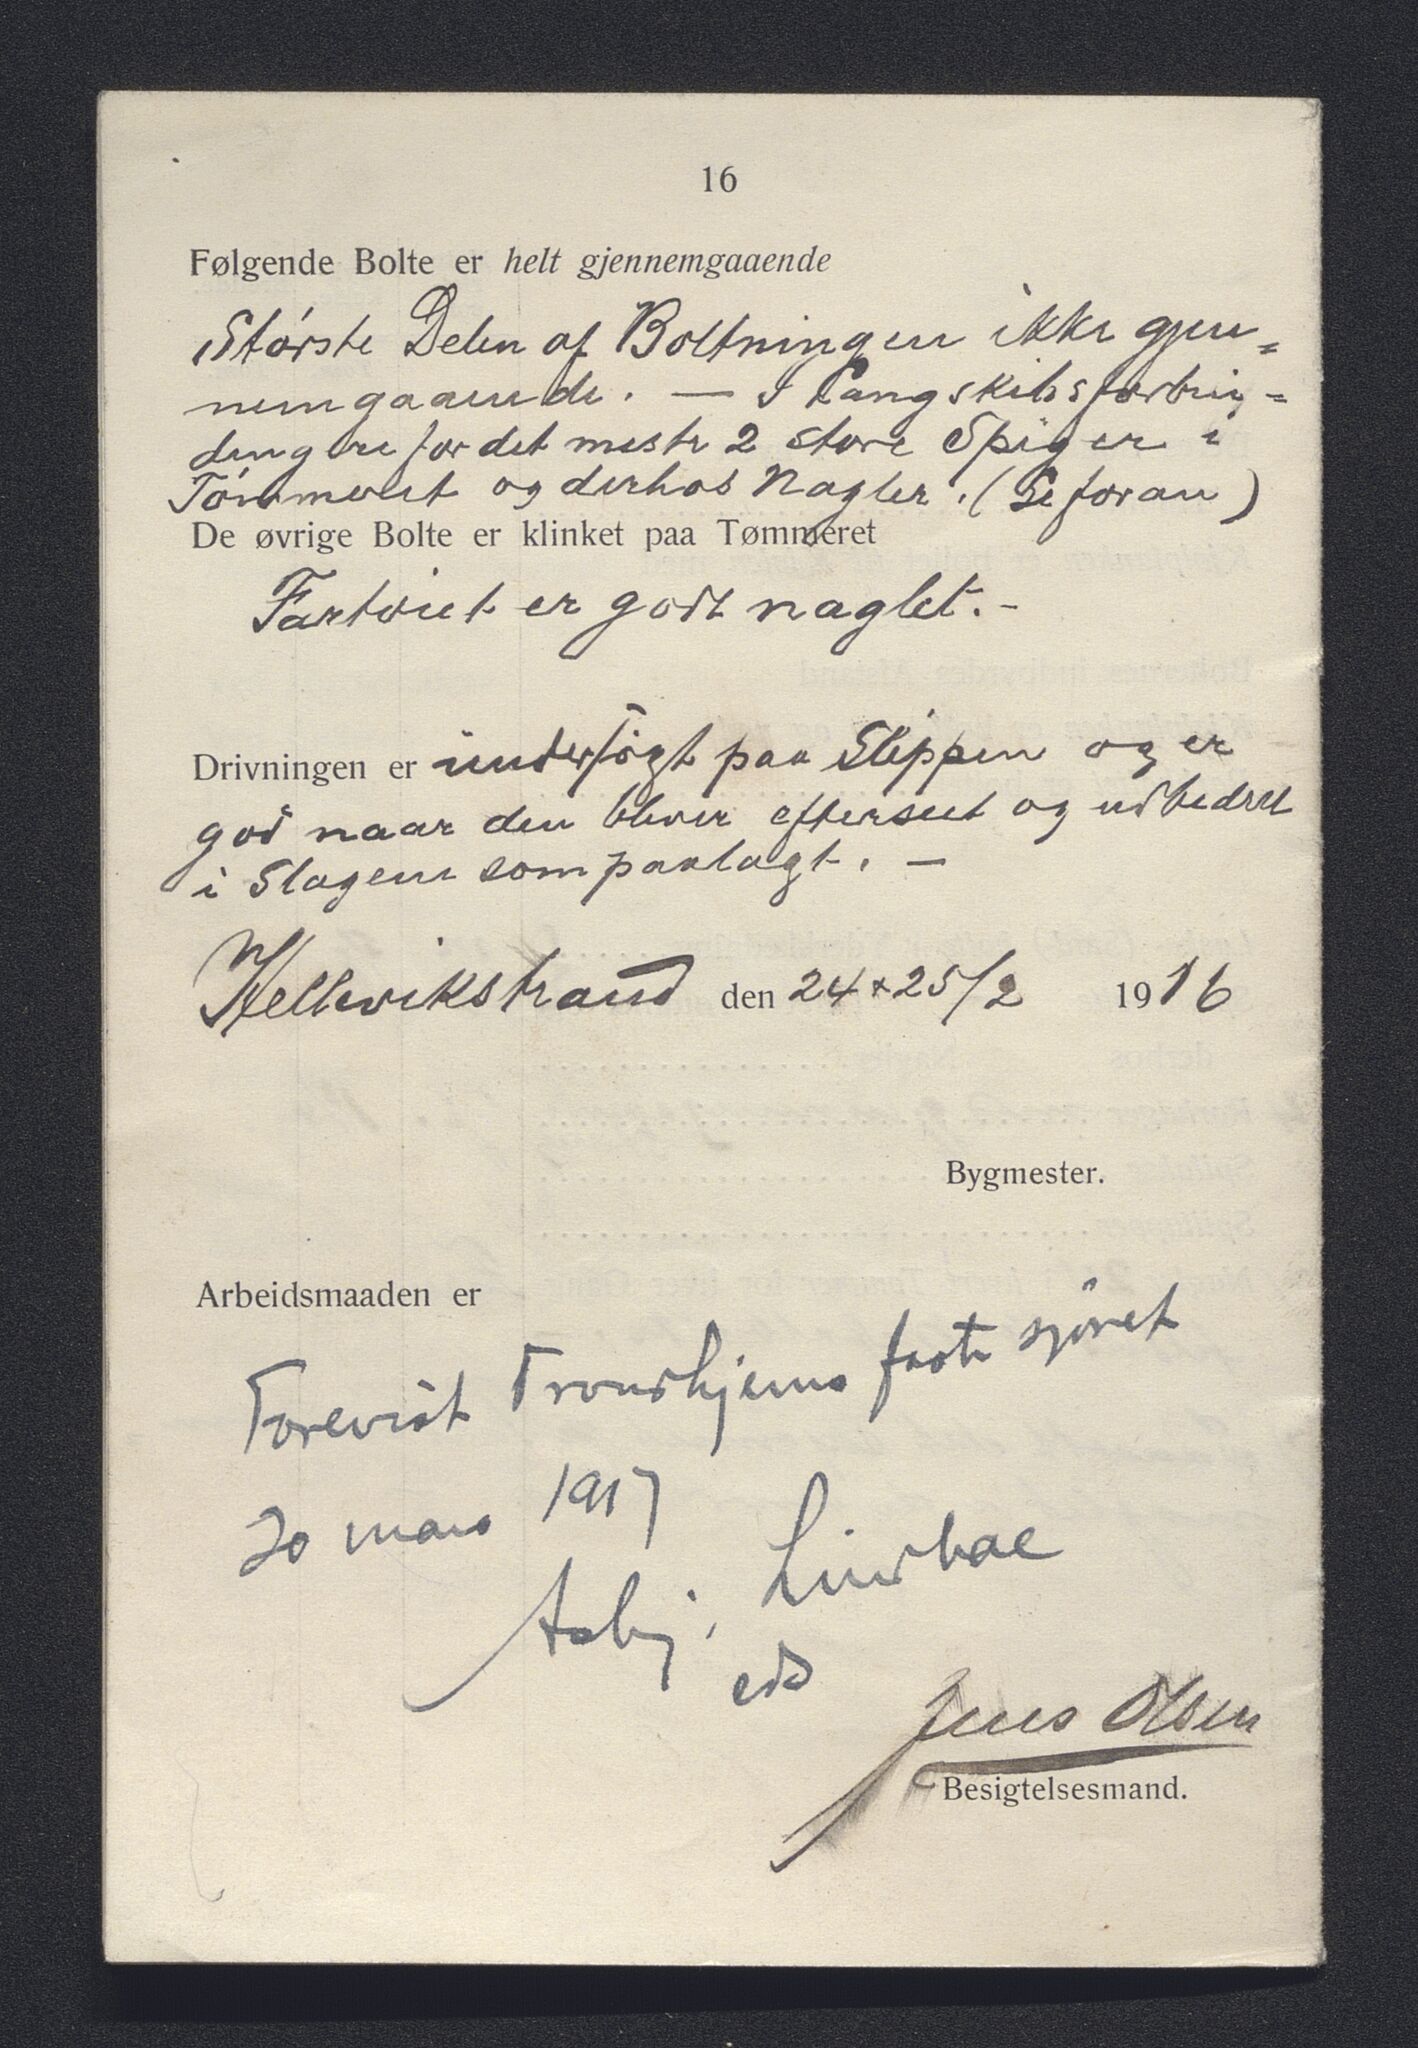 16
Følgende Bolte er helt gjennemgaaende
Største Delen af Boltningen ikke gjen=
nemgaaende. — I Langskibsforbin=
dingere for det meste 2 store Spiger i
Tømmeret og derhos Nagler. (Se foran)
De øvrige Bolte er klinket paa Tømmeret
Fartøiet er godt naglet.-
Drivningen er undersøgt paa Slippen og er
god naar den bliver efterseet og udbedret
i Slagene som paalagt. —
Hellevikstrand den 24 + 25/2 1916
Bygmester.
Arbeidsmaaden er
Forevist Trondhjems faste sjøret
20 mars 1917
Asbj. Lindboe
eds
Jens Olsen
Besigtelsesmand.